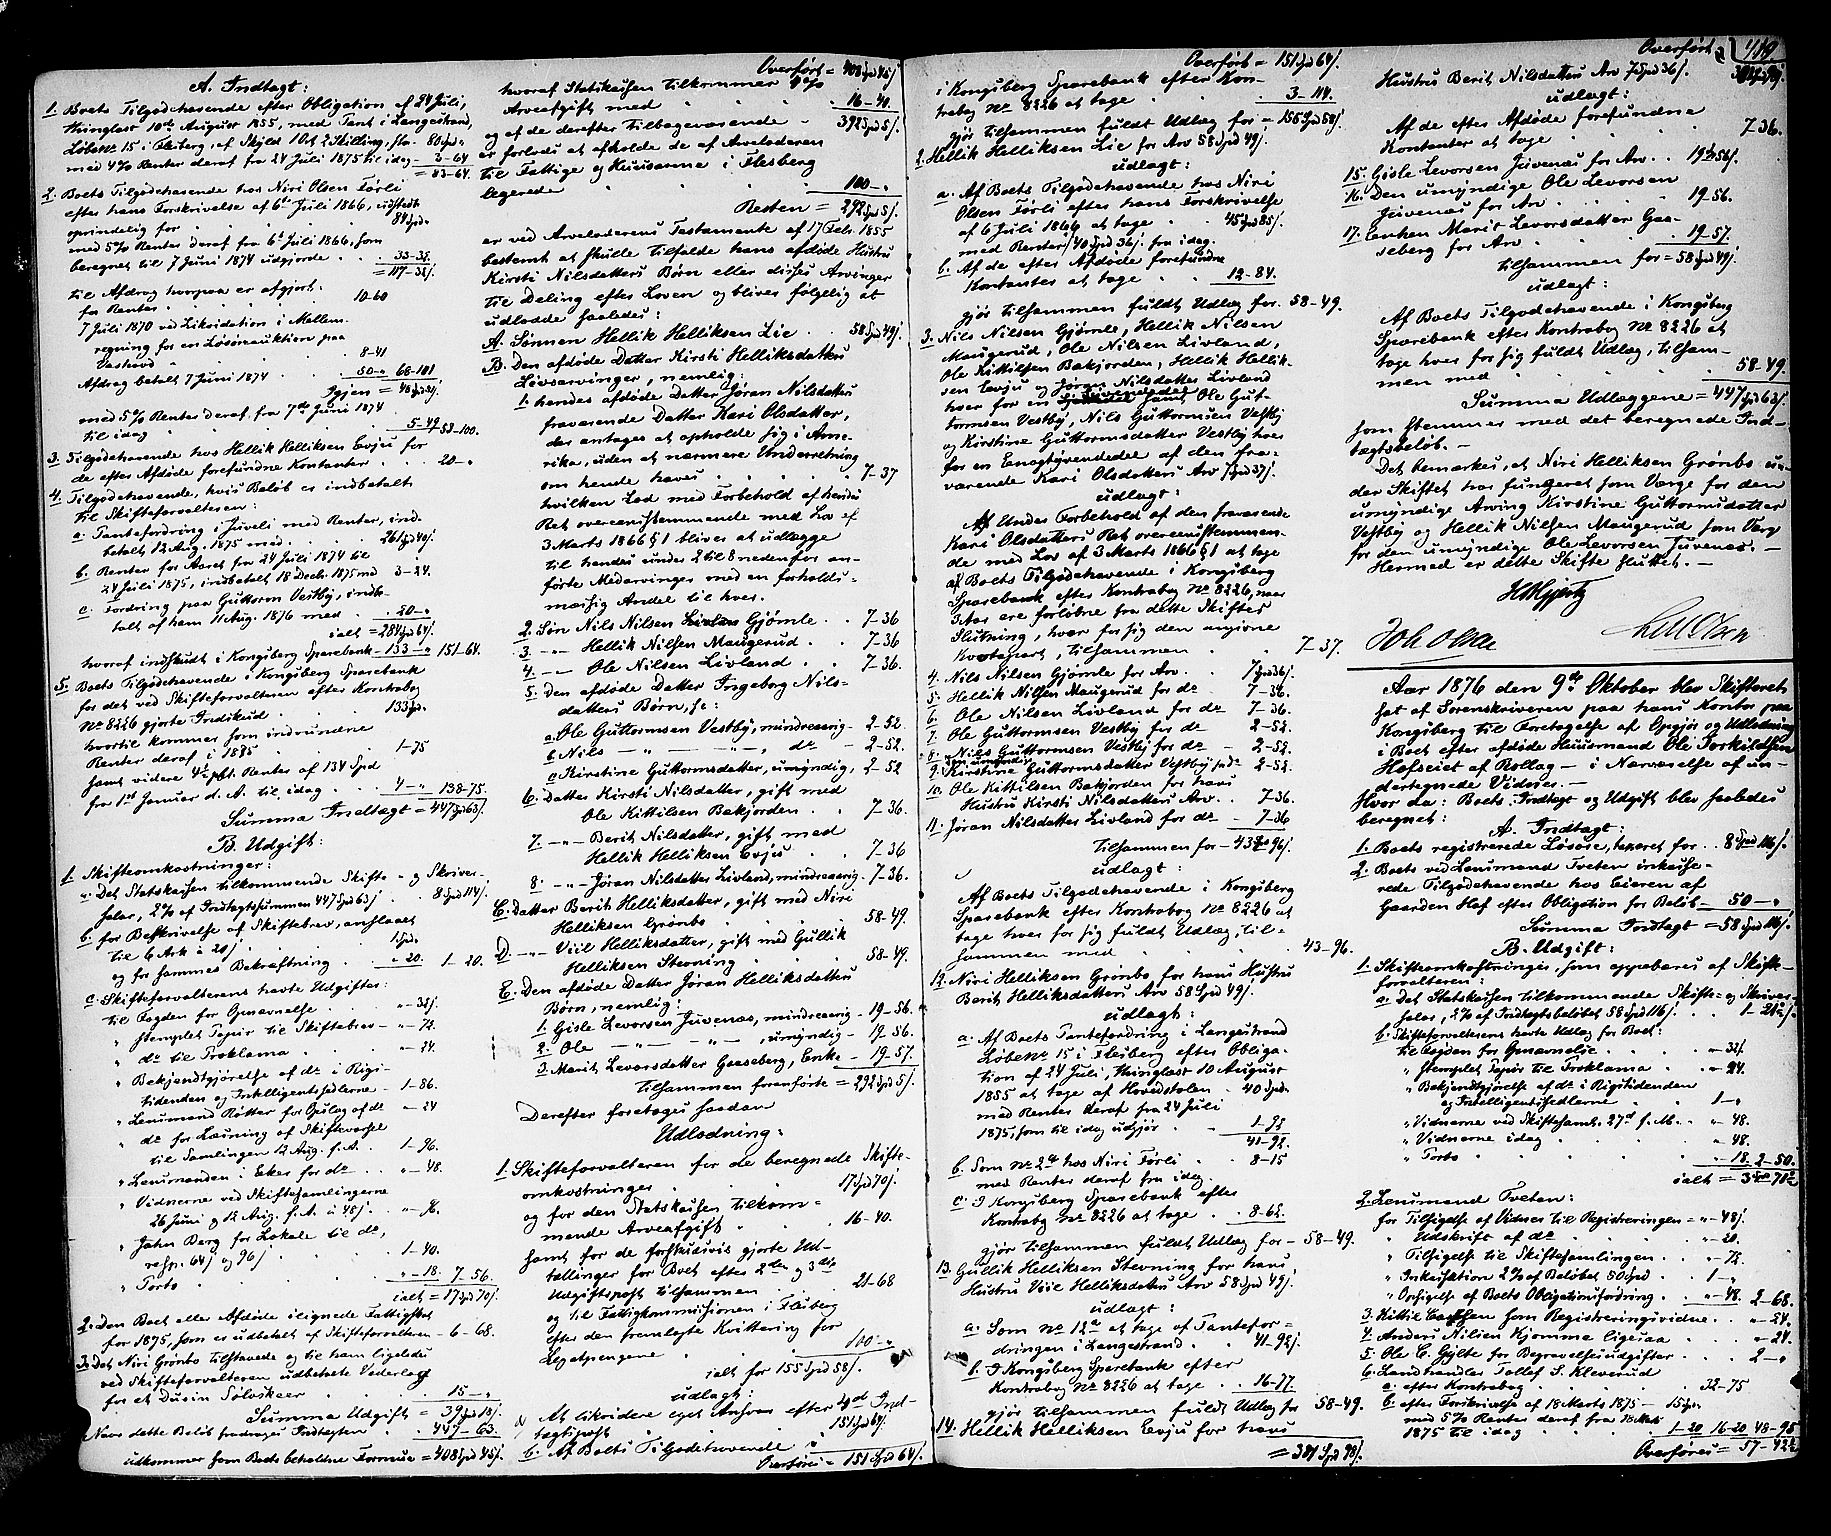 A. Indtægt:
1. Boets Tilgodehavende efter Obligation af 24 Juli,
thinglæst 10de August 1855, med Pant i Langestrand,
Løbe No 15 i Flesberg, af Skyld 1 Ort 2 Skilling, stor 80 Spd "
med 4% Renter deraf fra 24 Juli 1875 til idag 3-64
= 83-64.
2. Boets Tilgodehavende hos Niri Olsen Førli
efter hans Forskrivelse af 6te Juli 1866, udstedt
oprindelig for 84 Spd.
med 5% Renter deraf fra 6te Juli 1866, som
beregnet til 7 Juni 1874 udgjorde 33-35.
= 117-35/.
til Afdrag hvorpaa er afgjort.
for Renter 10-60
7 Juli 1870 ved Likvidation i Mellem-
regning for en Løsøreauktion paa
8-41
Afdrag betalt 7 Juni 1874 50-" 68-101
Igjen =
med 5% Renter deraf fra 7de Juni 1874
til idag 5-49 53-100.
3. Tilgodehavende hos Hellik Helliksen Evju for
de efter Afdøde forefundne Kontanter 20-"
4. Tilgodehavende, hvis Beløb er indbetalt
til Skifteforvalteren:
a. Pantefordring i Juveli med Renter, ind-
betalt 12 Aug. 1875 med 261 Spd 40/.
b. Renter for Aaret fra 24 Juli 1874 til
24 Juli 1875, indbetalt 18 Decbr. 1875 med 3-24.
c. Fordring paa Guttorm Vestby, indbe-
talt af ham 11 Aug. 1876 med 20-"
ialt = 284 Spd 64/.
hvoraf indskudt i Kongsberg Sparebank - 133-" 151-64.
5. Boets Tilgodehavende i Kongsberg Sparebank
for det ved Skifteforvalteren efter Kontrabog
No 8226 gjorte Indskud 133 Spd.
hvortil kommer som indvundne
Renter deraf i 1875 1-75
samt videre 4½ pCt. Renter af 134 Spd
fra 1st Januar d. A. til idag 4-" 138-75.
Summa Indtægt = 447 Spd 63/.
B. Udgift:
1. Skifteomkostninger:
a. Det Statskassen tilkommende Skifte- og Skriver-
salær, 2% af Indtægtssummen 447 Spd 63/ 8 Spd 114/.
b. for Beskrivelse af Skiftebrev, anslaaet
til 6 Ark a 20/ 1 Spd.
og for sammes Bekræftning " 20. 1-20.
c. Skifteforvalterens havte Udgifter:
til Fogden for Gjenavnelse "-32/.
" stemplet Papir til Skiftebrev "-72.
" do til Proklama "-24.
" Bekjendtgjørelse af do i Rigs-
tidenden og Intelligentssedlerne 1-86.
" Lensmand Røtter for Opslag af do "-24
" do for Læsning af Skiftevarsel
til Samlingen 12 Aug. f. A. 1-96.
" Lensmanden i Eker for do "-48.
" Vidnerne ved Skiftesamlingerne
26 Juni og 12 Aug. f. A. a 48/. "-96.
" John Berg for Lokale til do,
resp. 64/ og 96/ 1-40.
" Porto "-18. 7-56.
ialt = 17 Spd 70/.
2. Den Boet eller Afdøde ilignede Fattigskat
for 1875, som er udbetalt af Skifteforvalteren 6-68.
3. Det Niri Grønbo tilstaaede og til ham ligeledes
ved Skifteforvalteren udbetalte Vederlag
for et Dusin Sølvskeer 15-"
Summa Udgift = 39 Spd 18/.
Naar dette Beløb fradrages Indtægten 447-63.
udkommer som Boets beholdne Formue = 408 Spd 45/.
Overført = 408 Spd 45/.
hvoraf Statskassen tilkommer 4%
Arveafgift med 16-40.
og af de derefter tilbageværende 392 Spd 5/.
er forlods at afholde de af Arveladeren
til Fattige og Huusarme i Flesberg
legerede 100-"
Resten = 292 Spd 5/.
er ved Arveladerens Testamente af 17 Febr. 1855
bestemt at skulle tilfalde hans afdøde Hustru
Kirsti Nilsdatters Børn eller disses Arvinger
til Deling efter Loven og blives følgelig at
udlodde saaledes:
A. Sønnen Hellik Helliksen Lie 58 Spd 49/.
B. Den afdøde Datter Kirsti Helliksdatters
Livsarvinger, nemlig:
1. hendes afdøde Datter Jøran Nilsdatters
fraværende Datter Kari Olsdatter,
der antages at opholde sig i Ame-
rika, uden at nærmere Underretning
om hende haves 7-37
hvilken Lod med Forbehold af hendes
Ret overensstemmende med Lov af
3 Marts 1866 § 1 bliver at udlægge
til hendes under 2 til 8 nedenfor an-
førte Medarvinger med en forholds-
mæssig Andel til hver.
2. Søn Nils Nilsen Gjømle 7-36
3. -"- Hellik Nilsen Maugerud 7-36
4. -"- Ole Nilsen Livland 7-36.
5. Den afdøde Datter Ingeborg Nils-
datters Børn, se:
a. Ole Guttormsen Vestby, mindreaarig - 2-52
b. Nils -"- -"-, do - 2-52.
c. Kirstine Guttormsdatter, umyndig, 2-52
6. Datter Kirsti Nilsdatter, gift med
Ole Kittilsen Bakjorden 7-36.
7. -"- Berit Nilsdatter, gift med
Hellik Helliksen Evju 7-36
8. -"- Jøran Nilsdatter Livland, mindreaarig 7-36.
C. Datter Berit Helliksdatter, gift med Niri
Helliksen Grønbo 58-49.
D. -"- Viil Helliksdatter, gift med Gullik
Helliksen Stevning 58-49.
E. Den afdøde Datter Joran Helliksdatters
Børn, nemlig:
1. Gisle Levorsen Juvenæs, mindreaarig - 19-56.
2. Ole -"- -"-, umyndig - 19-56.
3. Marit Levorsdatter Gaaseberg, Enke - 19-57.
tilsammen foranførte = 292 Spd 5/.
Derefter foretoges saadan
Udlodning:
1. Skifteforvalteren for de beregnede Skifte-
omkostninger 17 Spd 70/.
og for den Statskassen tilkom-
mende Arveafgift 16-40.
samt for de forskudsvis gjorte Ud-
tællinger for Boet efter 2den og 3die
Udgiftspost tilsammen 21-68
og til Fattigkommissionen i Flesberg
efter den fremlagte Kvittering for
Legatpengene 100-"
ialt for 155 Spd 58/.
udlagt:
a. At likvidere eget Ansvar efter 4de Ind-
tægtspost 151 Spd 64/.
b. Af Boets Tilgodehavende
Overføres = 151 Spd 64/.
Overført = 151 Spd 64/.
i Kongsberg Sparebank efter Kon-
trabog No 8226 at tage 3-114.
gjør tilsammen fuldt Udlæg for = 155 Spd 58/.
2. Hellik Helliksen Lie for Arv 58 Spd 49/.
udlagt:
a. Af Boets Tilgodehavende hos Niri
Olsen Førli efter hans Forskrivelse
af 6 Juli 1866 at tage 45 Spd 85/.
med Renter fra idag.
b. Af de efter Afdøde forefundne
Kontanter at tage 12-84.
gjør tilsammen fuldt Udlæg for 58-49.
3. Nils Nilsen Gjømle, Hellik Nilsen
Maugerud, Ole Nilsen Livland,
Ole Kittilsen Bakjorden, Hellik Hellik-
sen Evju og Jøran Nilsdatter Livland
hver for en samt Ole Gut-
tormsen Vestby, Nils Guttormsen Vestby
og Kirstine Guttormsdatter Vestby hver
for en Enogtyvendedel af den fra-
værende Kari Olsdatters Arv 7 Spd 37/.
udlagt:
Under Forbehold af den fraværende
Kari Olsdatters Ret overensstemmen-
de med Lov af 3 Marts 1866 § 1 at tage
af Boets Tilgodehavende i Kongsberg
Sparebank efter Kontrabog No 8226, naar
3 Aar ere forløbne fra dette Skiftes
Slutning, hver for sig den angivne
Kvotapart, tilsammen 7-37.
4. Nils Nilsen Gjømle for Arv 7 Spd 36/.
5. Hellik Nilsen Maugerud for do 7-36.
6. Ole Nilsen Livland for do 7-36.
7. Ole Guttormsen Vestby for do 2-52.
8. Nils Guttormsen Vestby for do 2-52.
den umyndige
9. Kirstine Guttormsdatter Vestby for do 2-52.
10. Ole Kittilsen Bakjorden for hans
Hustru Kirsti Nilsdatters Arv 7-36.
11. Jøran Nilsdatter Livland for do 7-36
tilsammen for - 43 Spd 96/.
udlagt:
Af Boets Tilgodehavende i Kongsberg
Sparebank efter Kontrabog No 8226 at
tage hver for sig fuldt Udlæg, til-
sammen med 43-96.
12. Niri Helliksen Grønbo for hans Hustru
Berit Helliksdatters Arv 58 Spd 49/.
udlagt:
a. Af Boets Pantefordring i Langestrand
Løbe No 15 i Flesberg efter Obliga-
tion af 24 Juli, thinglæst 10 August
1855 at tage af Hovedstolen 40 Spd.
med Renter deraf fra 24 Juli
1875, som til idag udgjør 1-92
41-92.
b. Som No 2a hos Niri Førli 8-15
med Renter deraf fra idag.
c. I Kongsberg Sparebank efter
Kontrabog No 8226 at tage 8-62.
gjør tilsammen fuldt Udlæg for - 58-49.
13. Gullik Helliksen Stevning for hans
Hustru Viil Helliksdatters Arv 58 Spd 49/.
udlagt:
a. Som No 12a at tage af Pantefor-
dringen i Langestrand 41-92/.
b. I Kongsberg Sparebank efter
Kontrabog No 8226 at tage 16-77.
gjør tilsammen fuldt Udlæg for 58-49.
14. Hellik Helliksen Evju for hans
= 381 Spd 98/.
Overført
419
Hustru Berit Nilsdatters Arv 7 Spd 36/.
udlagt:
Af de efter Afdøde forefundne
Kontanter at tage 7-36.
15. Gisle Levorsen Juvenæs for Arv 19 Spd 56/.
16. Den umyndige Ole Levorsen
Juvenæs for Arv 19-56.
17. Enken Marit Levorsdatter Gaa-
seberg for Arv 19-57
tilsammen for = 58 Spd 49/.
udlagt:
Af Boets Tilgodehavende i Kongsberg
Sparebank efter Kontrabog No 8226 at
tage hver for sig fuldt Udlæg, tilsam-
men med 58-49.
Summa Udlæggene = 447 Spd 63/.
som stemmer med det beregnede Ind-
tægtsbeløb. -
Det bemærkes, at Niri Helliksen Grønbo un-
der Skiftet har fungeret som Værge for den
umyndige Arving Kirstine Guttormsdatter
Vestby og Hellik Nilsen Maugerud som Værge
for den umyndige Ole Levorsen Juvenæs. -
Hermed er dette Skifte sluttet. -
Joh Olsen
Aar 1876 den 9de Oktober blev Skifteret
sat af Sorenskriveren paa hans Kontor paa
Kongsberg til Foretagelse af Opgjør og Udlodning
i Boet efter afdøde Huusmand Ole Torkildsen
Hofseiet af Rollag - i Nærværelse af un-
dertegnede Vidner. -
Hvor da: Boets Indtægt og Udgift blev saaledes
beregnet:
A. Indtægt:
1. Boets registrerede Løsøre, taxeret for 8 Spd 116/.
2. Boets ved Lensmand Tveten inkasse-
rede Tilgodehavende hos Eieren af
Gaarden Hof efter Obligation for Beløb 50-"
Summa Indtægt = 58 Spd 116/.
B. Udgift:
1. Skifteomkostninger, som oppebæres af Skifte-
forvalteren:
a. Det Statskassen tilkommende Skifte- og Skriver-
salær, 2% af Indtægtsbeløbet 58 Spd 116/. 1-21½/.
b. Skifteforvalterens havte Udlæg for Boet:
til Fogden for Gjenavnelse "-32/.
" stemplet Papir til Proklama "-24.
" Bekjendtgjørelse af do i Rigstidenden
og Intelligentssedlerne 1-"
" Vidnerne ved Skiftesaml. 27de f. M. "-48.
" Vidnerne idag "-48.
" Porto "-18. 2-50.
ialt = 3 Spd 71½
2. Lensmand Tveten:
for Tilsigelse af Vidner til Registreringen "-48/.
" Udskrift af do "-20.
" Tilsigelse til Skiftesamlingen "-72.
" Inkassation 2% af Beløbet 50 Spd 1-"
" Opsigelse af Boets Obligationsfordring "-48. 2-68.
3. Kittil som Registreringsvidne "-24.
4. Anders Nilsen Kjomme ligesaa "-24.
5. Ole C. Gjelte for Begravelsesudgifter 2-"
6. Landhandler Tollef S. Kleverud
a. efter Kontrabog 32-75
b. efter Forskrivelse af 18 Marts 1875 - 15 Spd.
med 5% Renter deraf fra 18 Marts
1875 til idag 1-20 16-20 48-95
Overføres = 57-42½